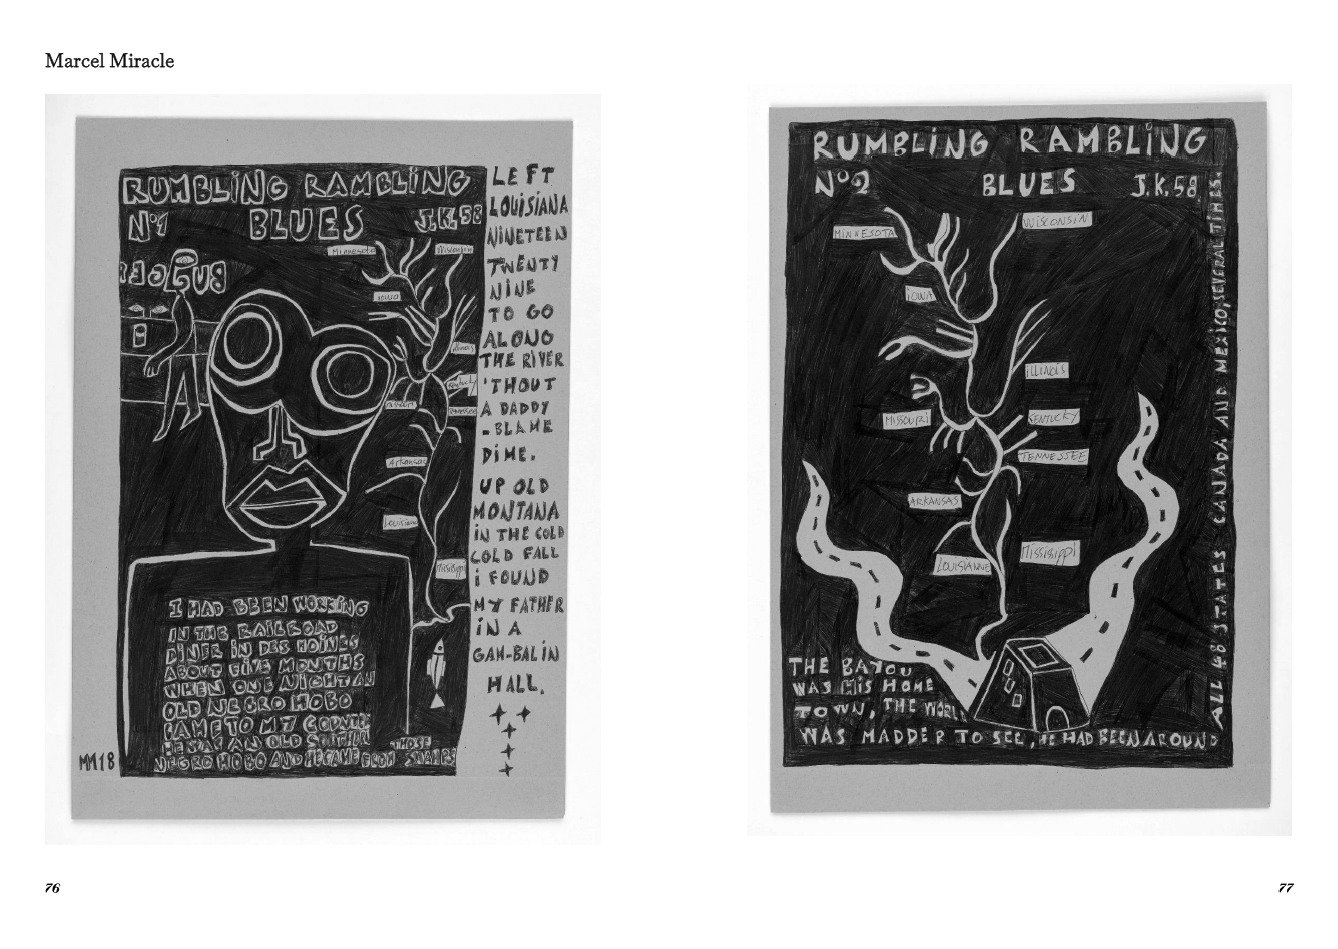 Marcel Miracle
RUMBLING RAMBLING
Nº1 BLUES J.K.58
Minnesota
Wisconsin
Iowa
Illinois
Kentucky
Missouri
Tennessee
Arkansas
Louisiana
Mississippi
I HAD BEEN WORKING
IN THE RAILROAD
DINER IN DES MOINES
ABOUT FIVE MONTHS
WHEN ONE NIGHT AN
OLD NEGRO HOBO
CAME TO MY COUNTER
HE WAS AN OLD SOUTHERN
NEGRO HOBO AND HE CAME FROM THOSE SWAMPS
MM18
LEFT
LOUISIANA
NINETEEN
TWENTY
NINE
TO GO
ALONG
THE RIVER
'THOUT
A DADDY
-BLAME
DIME.
UP OLD
MONTANA
IN THE COLD
COLD FALL
I FOUND
MY FATHER
IN A
GAM-BALIN
HALL.
RUMBLING RAMBLING
Nº2 BLUES J.K.58
MINNESOTA
WISCONSIN
IOWA
ILLINOIS
MISSOURI
KENTUCKY
TENNESSEE
ARKANSAS
LOUISIANNE
MISSISSIPPI
THE BAYOU
WAS HIS HOME
TOWN, THE WORLD
WAS MADDER TO SEE, HE HAD BEEN AROUND
ALL 48 STATES CANADA AND MEXICO, SEVERAL TIMES.
76
77